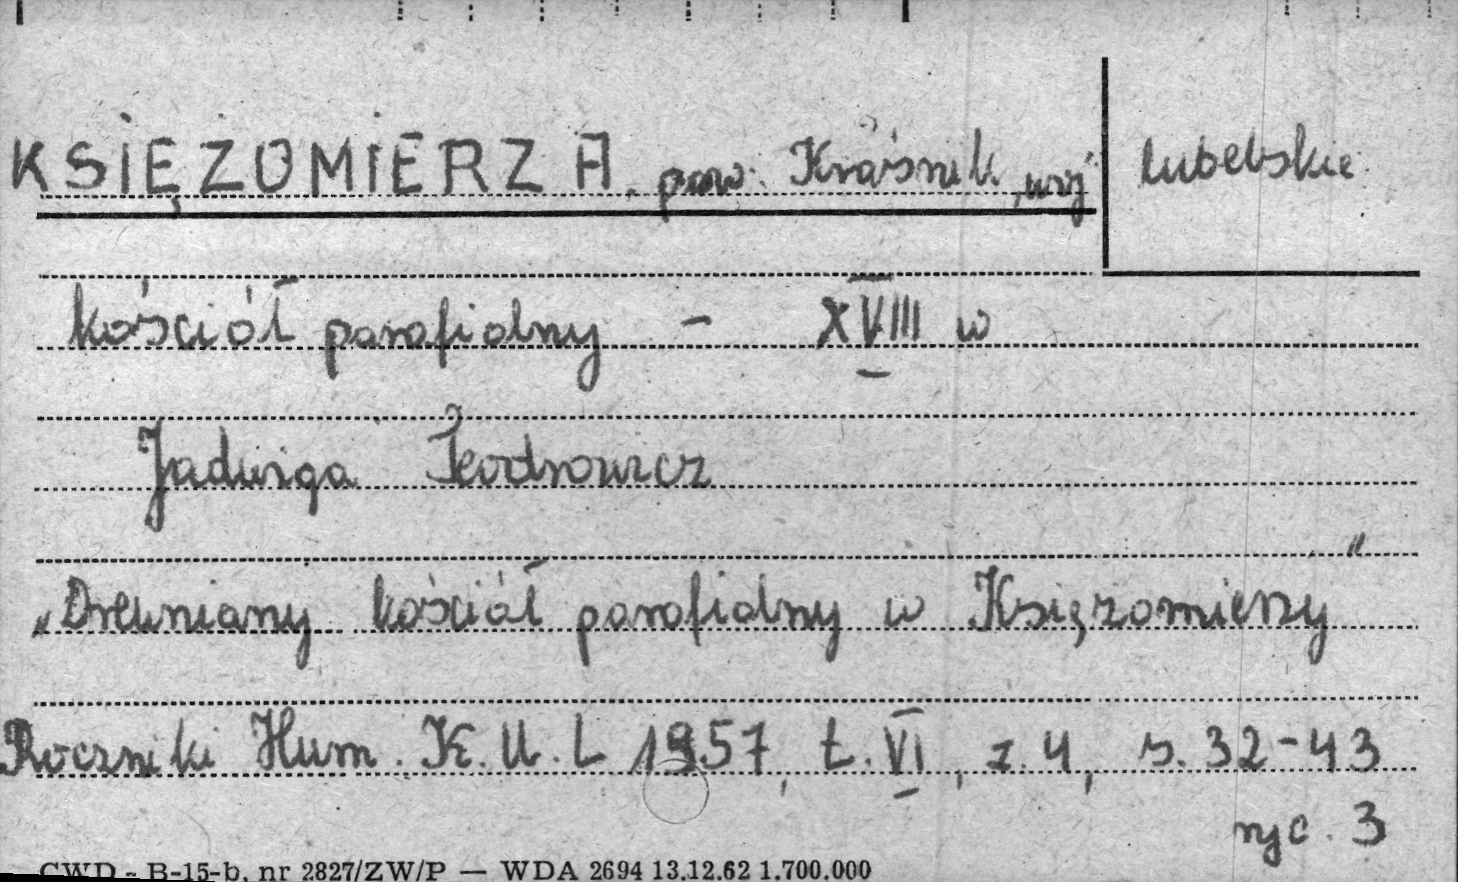 KSIĘŻOMIERZA, pow. Kraśnik, woj. lubelskie
kościół parafialny - XVIII w
Jadwiga Teodorowicz
„Drewniany kościół parafialny w Księżomierzy"
Roczniki Hum. K.U.L 1957, t. VI, z. 4, s. 32-43
ryc. 3
CWD - B-15-b, nr 2827/ZW/P — WDA 2694 13.12.62 1.700.000